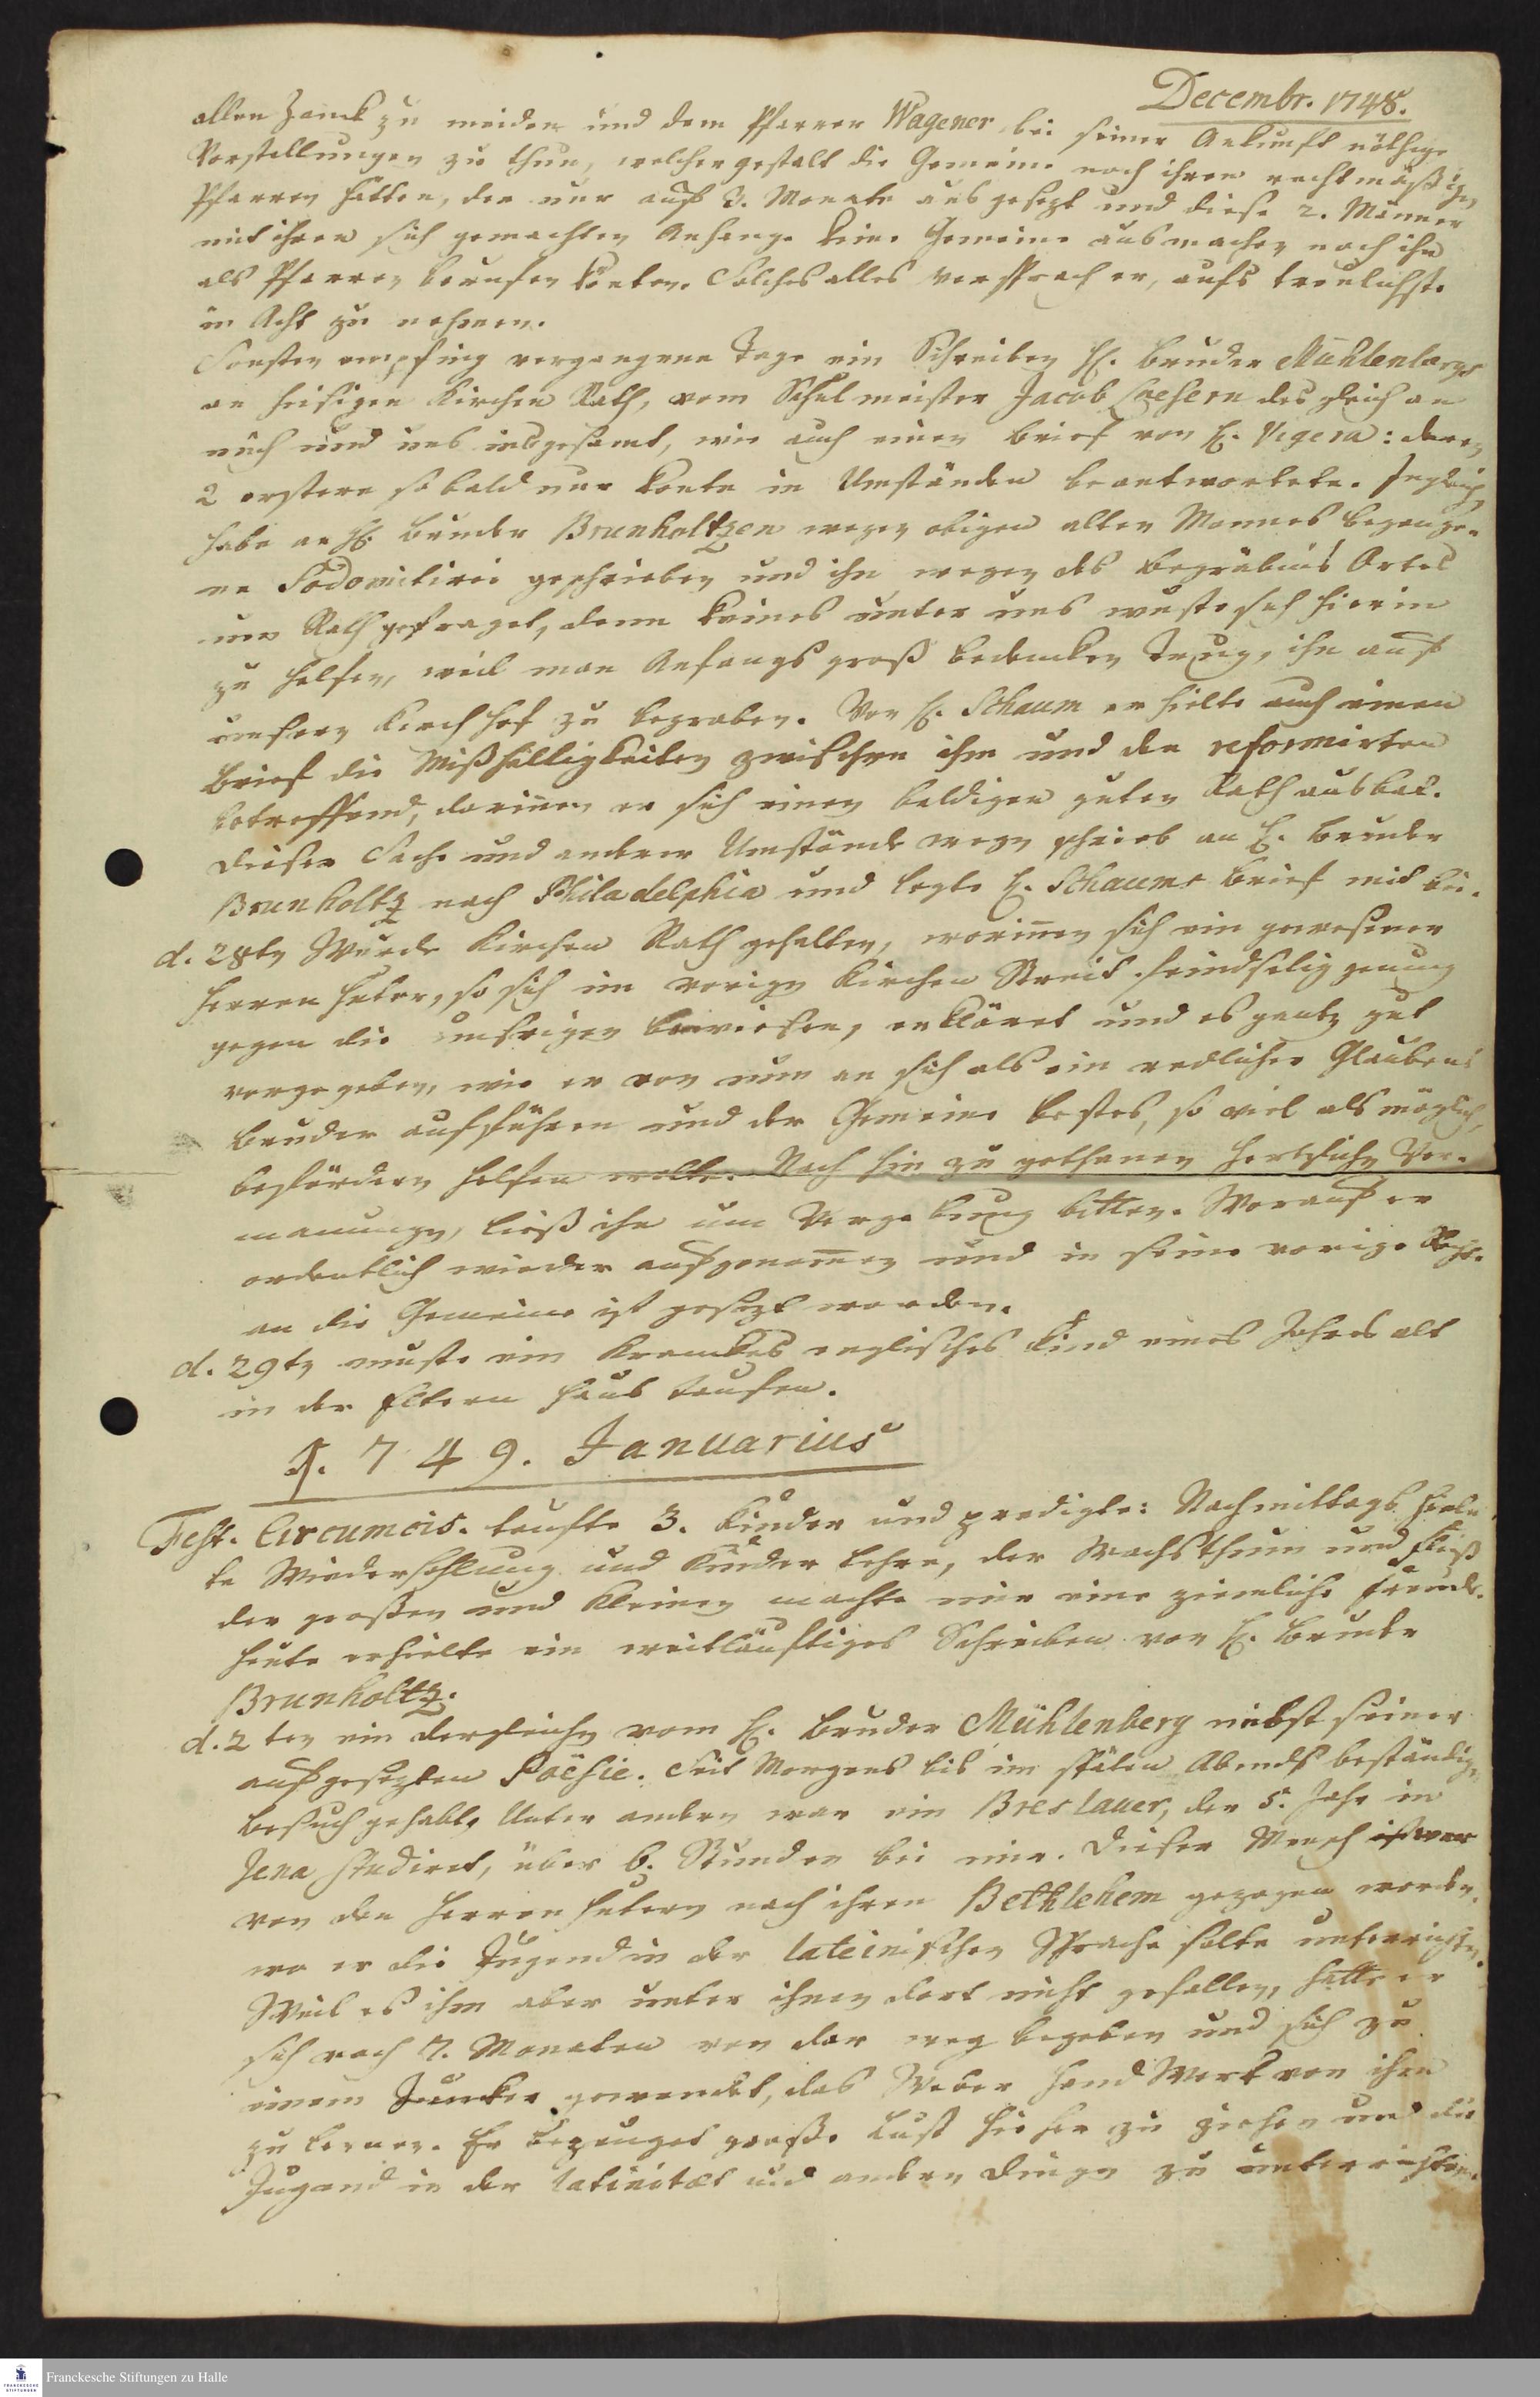 Decembr. 1748.
allen Zanck zu meiden und dem Pfarrer Wagener bei seiner Ankunft nöthige
Vorstellungen zu thun, welcher gestalt die Gemeine noch ihren rechtmäßigen
Pfarrer hätten, der nur auf 3. Monate ausgesezt und diese 2. Männer
mit ihren sich gemachten Anhange keine Gemeine ausmachen noch ihn
als Pfarrer beruffen könten. Solches alles versprach er, aufs treulichste
in Acht zu nehmen.
Sonsten empfing vergangene Tage ein Schreiben H. Bruder Mühlenbergs
an hiesigen Kirchen Rath, vom Schulmeister Jacob Loesern desgleichen
mich und uns insgesamt, wie auch einen Brief von H. Vigera: deren
2 erstere so bald nur konte in Umständen beantwortete. Zugleich
habe an H. Bruder Brunholtzen wegen obigen alten Mannes begange-
ne Sodomiterei geschrieben und ihn wegen des Begräbnis Ortes
um Rath gefraget, denn keines unter uns wuste sich hierin
zu helfen, weil man Anfangs groß bedencken trug, ihn auf
unsern Kirchhof zu begraben. Von H. Schaum erhielte auch einen
Brief die Mißhelligkeiten zwischen ihm und den reformirten
betreffend, darinnen er sich einen baldigen guten Rath ausbat.
Dieser Sache und anderer Umstände wegen schrieb an H. Bruder
Brunholtz nach Philadelphia und legte H. Schaums Brief mit bei.
d. 28ten Wurde Kirchen Rath gehalten, worinnen sich ein gewesener
Herren huter, so sich im vorigen Kirchen Streit feindselig genung
gegen die unsrigen bewiesen, erkläret und es gantz gut
vorgegeben, wie er von nun an sich als ein redlicher Glaubens
Bruder aufführen und der Gemeine bestes, so viel als möglich,
befördern helfen wolte. Nach hin zu gethanen hertzlichen Ver-
manungen, ließ ihn um Vergebung bitten. Worauf er
ordentlich wieder aufgenommen und in seine vorige Rechte
an die Gemeine ist gesezt worden.
d. 29ten muste ein kranckes englisches Kind eines Jahres alt
in der Eltern Haus taufen.
1. 7 4 9. Januarius
Fest. Circumcis. taufte 3. Kinder und predigte: Nachmittags hiel-
te Wiederhohlung und Kinder Lehre, der Wachsthum und Fleiß
der großen und kleinen machte mir eine ziemliche Freude.
Heute erhielte ein weitläuftiges Schreiben von H. Bruder
Brunholtz.
d. 2 ten ein dergleichen vom H. Bruder Mühlenberg nebst seiner
aufgesezten Poësie. Seit Morgens bis im späten Abends beständigen
Besuch gehabt, Unter andern war ein Breslauer, der 5. Jahr in
Jena studiret, über 6. Stunden bei mir. Dieser Mensch ist war
von den Herren hutern nach ihren Bethlehem gezogen worden,
wo er die Jugend in der lateinischen Sprache solte unterrichten.
Weil es ihm aber unter ihnen dort nicht gefallen, hatte er
sich nach 7. Monaten von dar weg begeben und sich zu
einem Juncker gewendet, das Weber Handwerk von ihm
zu lernen. Er bezeuget große Lust hieher zu ziehen und die
Jugend in der latinitæt und andern dingen zu unterrichten.
Franckesche Stiftungen zu Halle